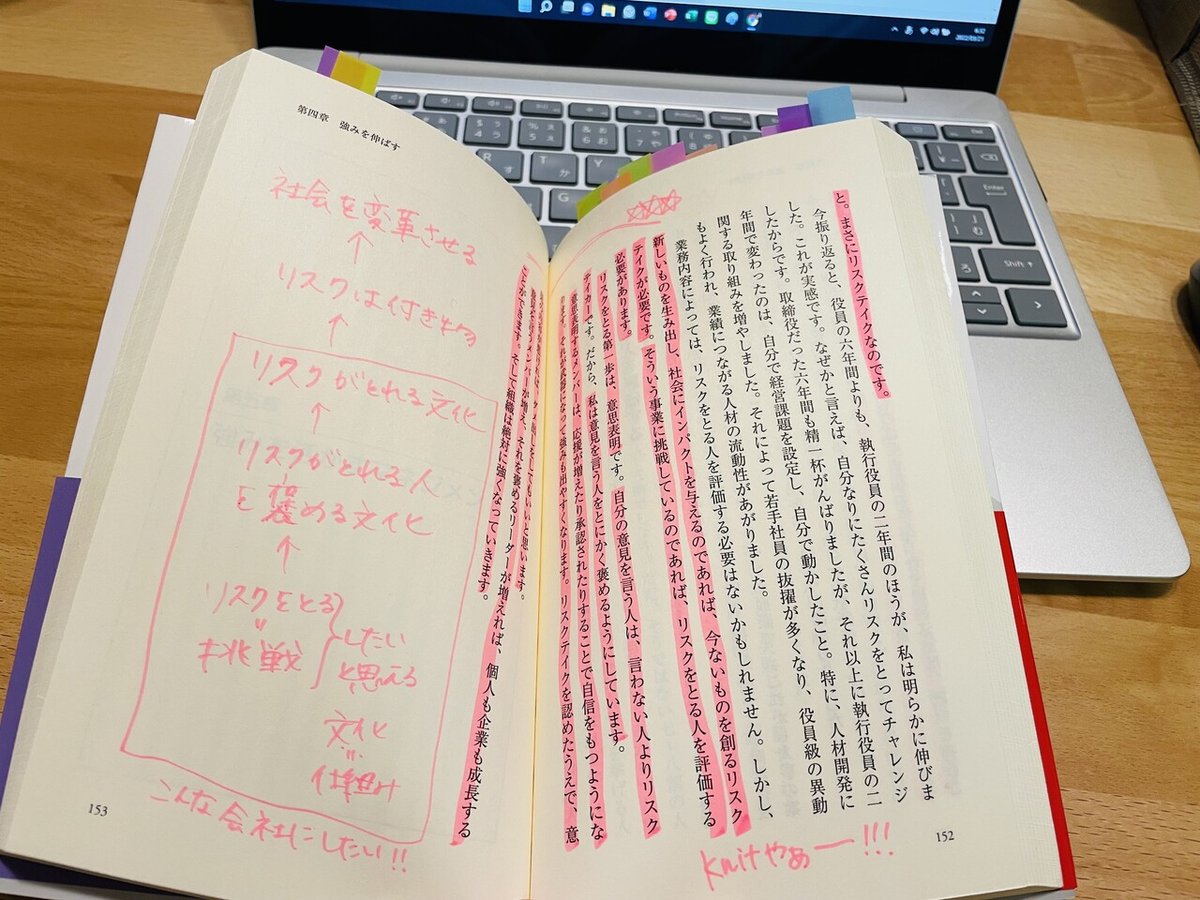 と。まさにリスクテイクなのです。
今振り返ると、役員の六年間よりも、執行役員の二年間のほうが、私は明らかに伸びま
した。これが実感です。なぜかと言えば、自分なりにたくさんリスクをとってチャレンジ
したからです。取締役だった六年間も精一杯がんばりましたが、それ以上に執行役員の二
年間で変わったのは、自分で経営課題を設定し、自分で動かしたこと。特に、人材開発に
関する取り組みを増やしました。それによって若手社員の抜擢が多くなり、役員級の異動
もよく行われ、業績につながる人材の流動性があがりました。
業務内容によっては、リスクをとる人を評価する必要はないかもしれません。しかし、
新しいものを生み出し、社会にインパクトを与えるのであれば、今ないものを創るリスク
テイクが必要です。そういう事業に挑戦しているのであれば、リスクをとる人を評価する
必要があります。
リスクをとる第一歩は、意思表明です。自分の意見を言う人は、言わない人よりリスク
テイカーです。だから、私は意見を言う人をとにかく褒めるようにしています。
意思表明するメンバーは、応援が増えたり承認されたりすることで自信をもつようにな
ります。それが武器になって強みも出やすくなります。リスクテイクを認めたうえで、意
knitやぁー!!!
152
第四章 強みを伸ばす
してもいいと思います。
メンバーが増え、それを褒めるリーダーが増えれば、個人も企業も成長する
ことができます。そして組織は絶対に強くなっていきます。
社会を変革させる
↑
リスクは付き物
↑
リスクがとれる文化
↑
リスクがとれる人
を褒める文化
↑
リスクをとる
=
挑戦
したい
と思える
文化
=
仕組み
こんな会社にしたい!!
153